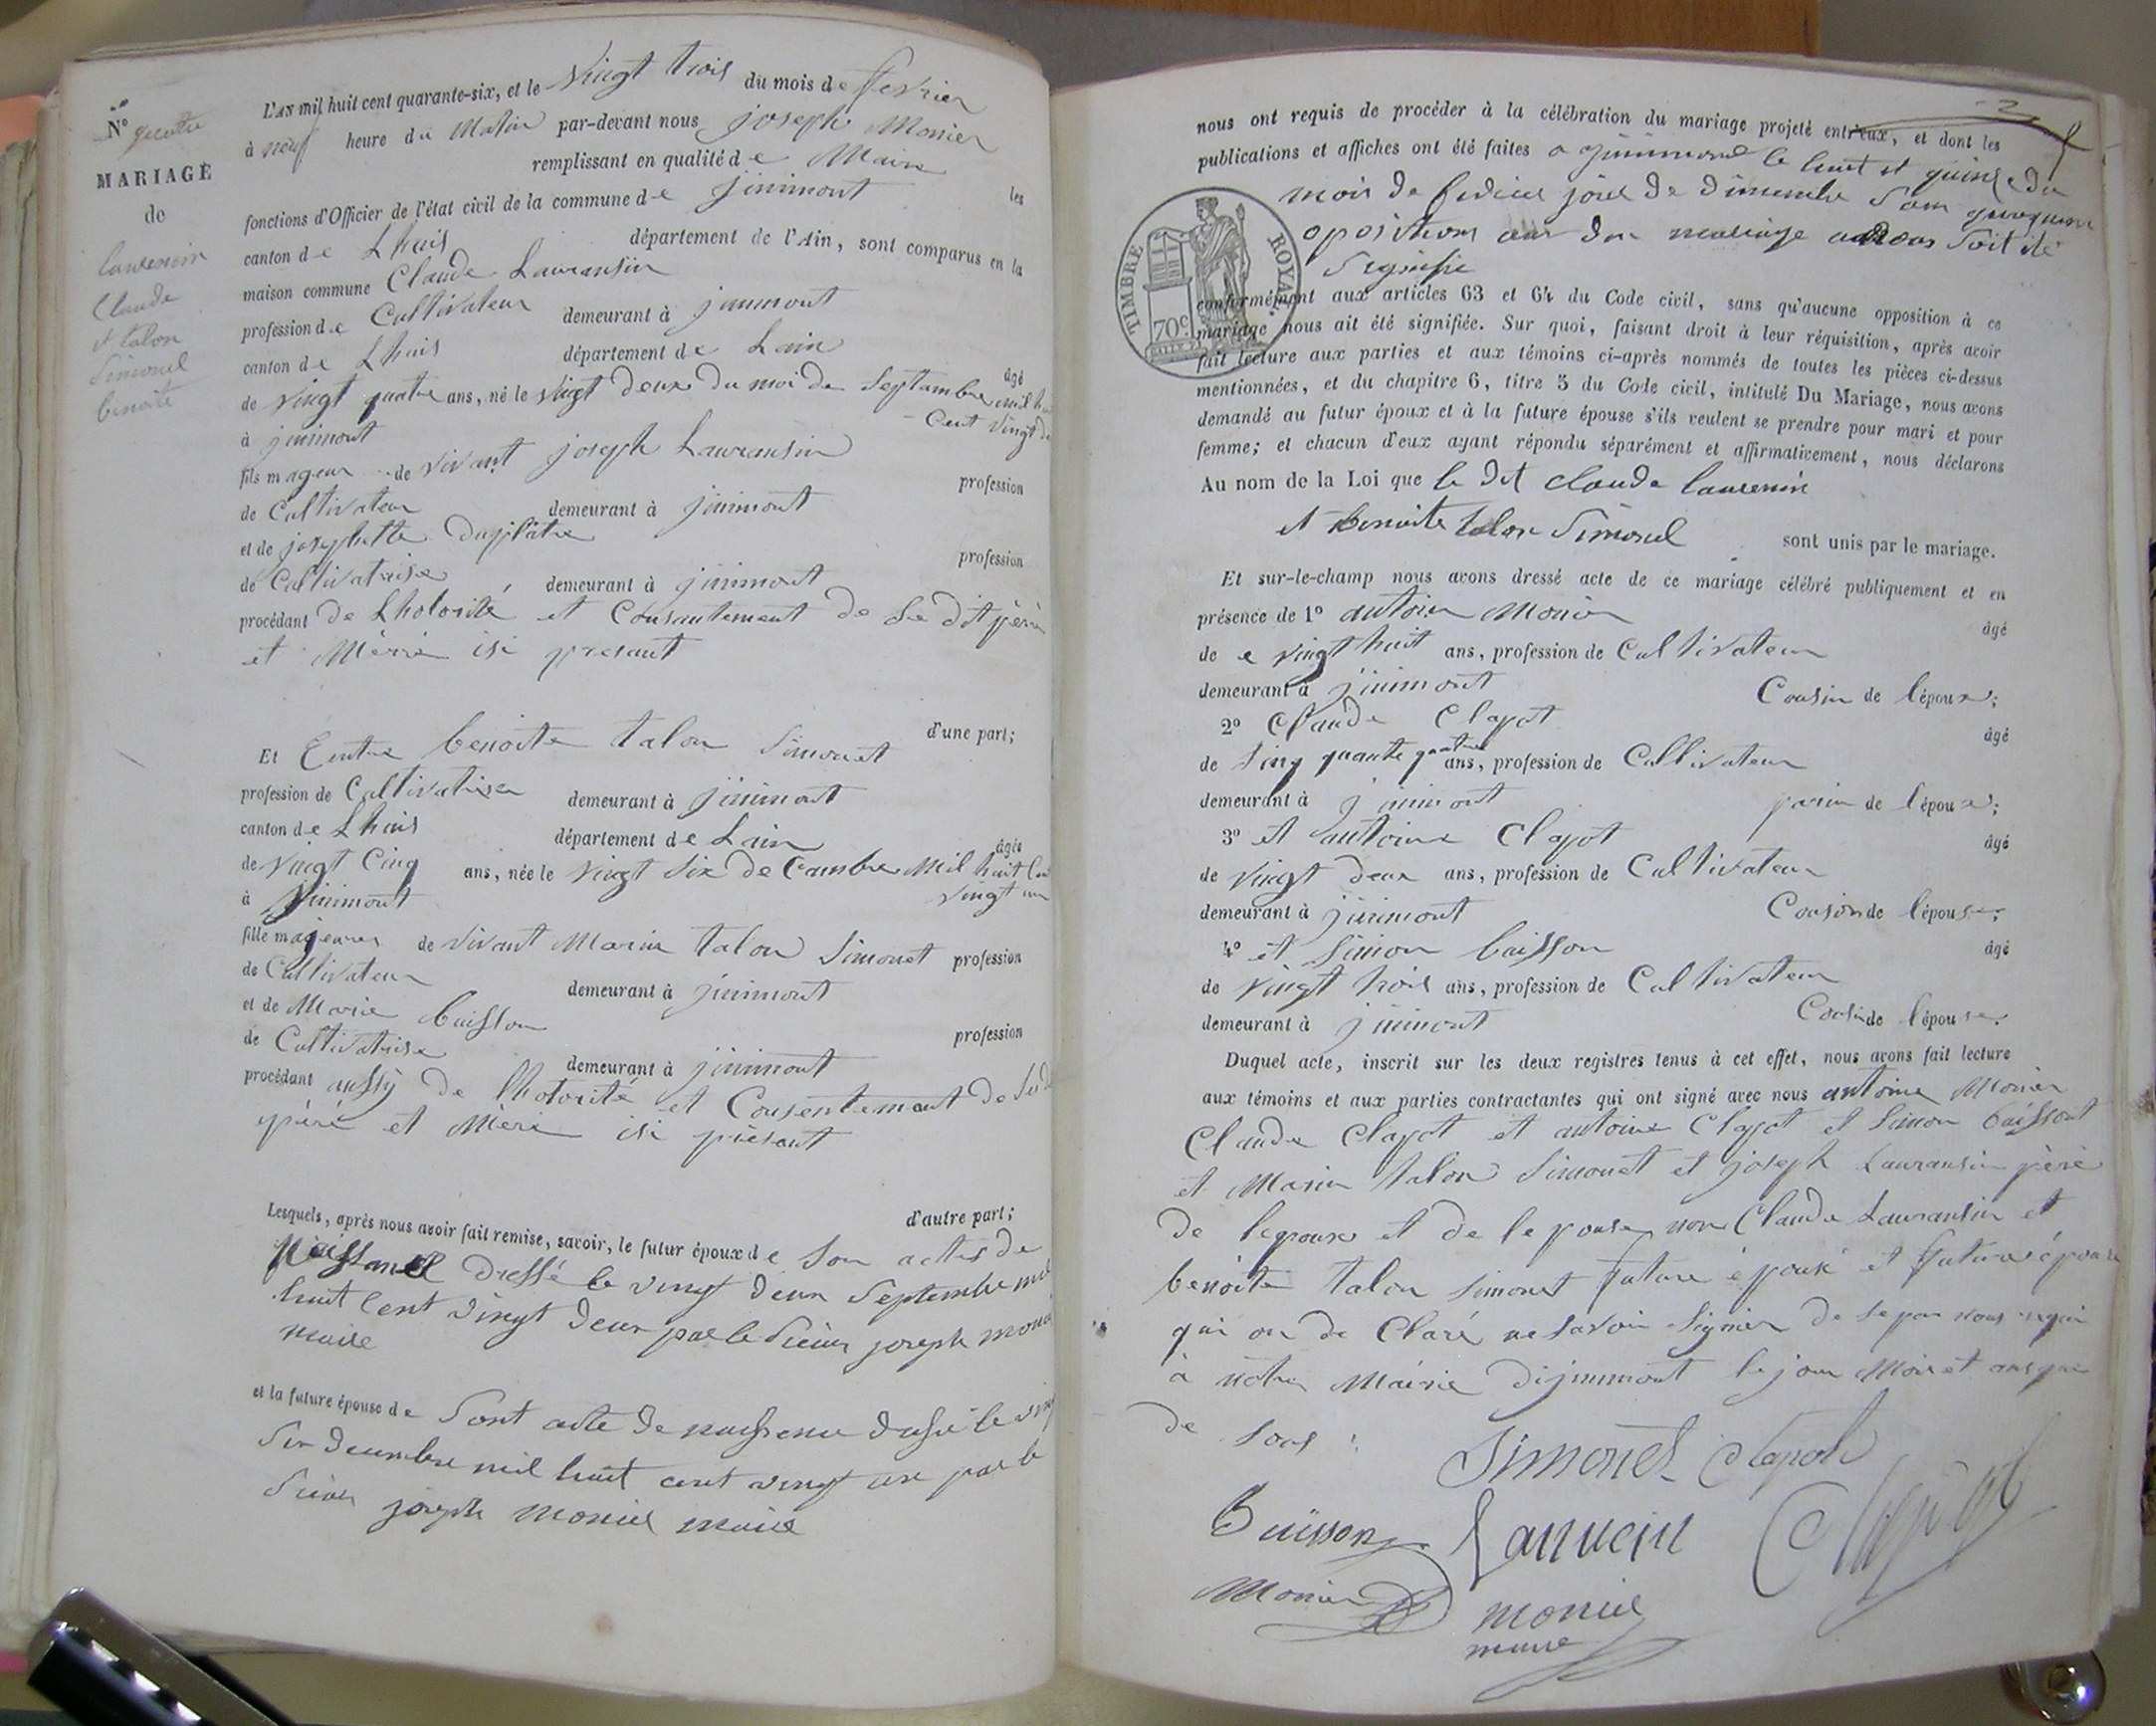 N° quatre
MARIAGE
de
laurenin
Claude
et talon
Simonel
benoite
L'AN mil huit cent quarante-six, et le Vingt trois du mois de fevrier
à neuf heure du Matin par-devant nous joseph Monier
remplissant en qualité de Maire les
fonctions d'Officier de l'état civil de la commune de jinimont
canton de Lhuis département de l'Ain, sont comparus en la
maison commune Claude Lauransin
profession de Cultivateur demeurant à jinimont
canton de Lhuis département de Lain âgé
de Vingt quatre ans, né le Vingt deux du moi de Septambre mil
Cent Vingt
à jinimont
fils mageur de Vivant joseph Lauransin profession
de Cultivateur demeurant à jinimont
et de josephette Duplâtre profession
de Cultivatrise demeurant à jinimont
procédant de Lhotorité et Consantement de Se dit père
et Mèrre isi presant
d'une part;
Et Entre benoite talon Simonet
profession de Cultivatrise demeurant à jinimont
canton de Lhuis département de Lain âgée
de Vingt Cinq ans, née le Vingt Six de Cambre Mil huit
Vingt un
à jinimont
fille mageure de Vivant Marin talon Simonet profession
de Cultivateur demeurant à jinimont
et de Marie buisson profession
de Cultivatrise demeurant à jinimont
procédant aussy de lhotorité et Consentemant de
père et Mère isi présant
d'autre part;
Lesquels, après nous avoir fait remise, savoir, le futur époux de Son actes de
Naissance dressé le vingt deux Septembre mil
huit Cent vingt deux par le Sieur joseph
maire
et la future épouse de Sont acte de naissence le
Six decembre mil huit cent vingt un par le
Sieur joseph monier maire
2
nous ont requis de procéder à la célébration du mariage projeté entr'eux, et dont les
publications et affiches ont été faites a jinimont le huit et quinse du
mois de jour de dimenche Sans
opositions au du mariage nous Soit été
Signifie
TIMBRE ROYAL
70c
conformément aux articles 63 et 64 du Code civil, sans qu'aucune opposition à ce
mariage nous ait été signifiée. Sur quoi, faisant droit à leur réquisition, après avoir
fait lecture aux parties et aux témoins ci-après nommés de toutes les pièces ci-dessus
mentionnées, et du chapitre 6, titre 5 du Code civil, intitulé Du Mariage, nous avons
demandé au futur époux et à la future épouse s'ils veulent se prendre pour mari et pour
femme; et chacun d'eux ayant répondu séparément et affirmativement, nous déclarons
Au nom de la Loi que le dit claude laurenin
et benoite talon Simonel sont unis par le mariage.
Et sur-le-champ nous avons dressé acte de ce mariage célébré publiquement et en
présence de 1° antoine Monier âgé
de vingt huit ans, profession de Cultivateur
demeurant à jinimont Cousin de lépoux;
2° Claude Clapot âgé
de Sinquante quatre ans, profession de Cultivateur
demeurant à jinimont de lépouse;
3° et antoine Clapot âgé
de vingt deux ans, profession de Cultivateur
demeurant à jinimont Cousin de lépouse;
4° et Simon buisson âgé
de Vingt trois ans, profession de Cultivateur
demeurant à jinimont Cousin de lépouse.
Duquel acte, inscrit sur les deux registres tenus à cet effet, nous avons fait lecture
aux témoins et aux parties contractantes qui ont signé avec nous antoine Monier
Claude Clapot et antoine Clapot et Simon buissont
et Marin talon Simonet et joseph Lauransin père
de lepoux et de le pouse non Claude Lauransin et
benoite talon Simonet future épouse et future épouse
qui on de Claré ne Savoir Signier de se par nous requi
à notre Mairie dijinimont le jour Mois et ans que
de sous
Simonet Clapot
Buisson Lanrein Clapot
Monier monier
maire